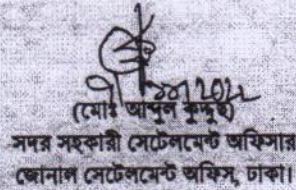 (মোঃ আব্দুল কুদ্দুছ)
সদর সহকারী সেটেলমেন্ট অফিসার
জোনাল সেটেলমেন্ট অফিস, ঢাকা।